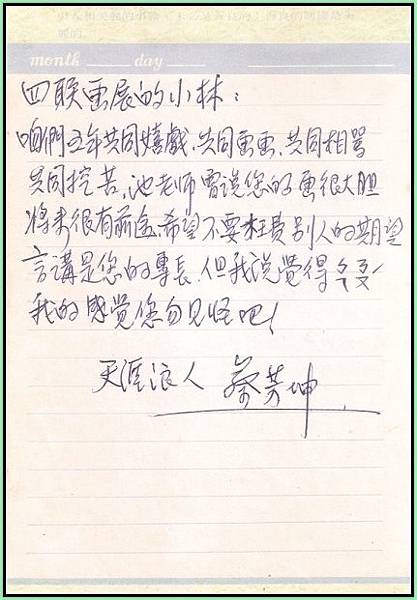 month day
四联画展的小林：
咱們五年共同嬉戲、共同画画、共同相罵
共同挖苦、池老师曾说您的画很大胆
将来很有前途、希望不要枉費別人的期望
言講是您的專長、但我说觉得
我的感觉您勿见怪吧！
天涯浪人 蔡芳坤